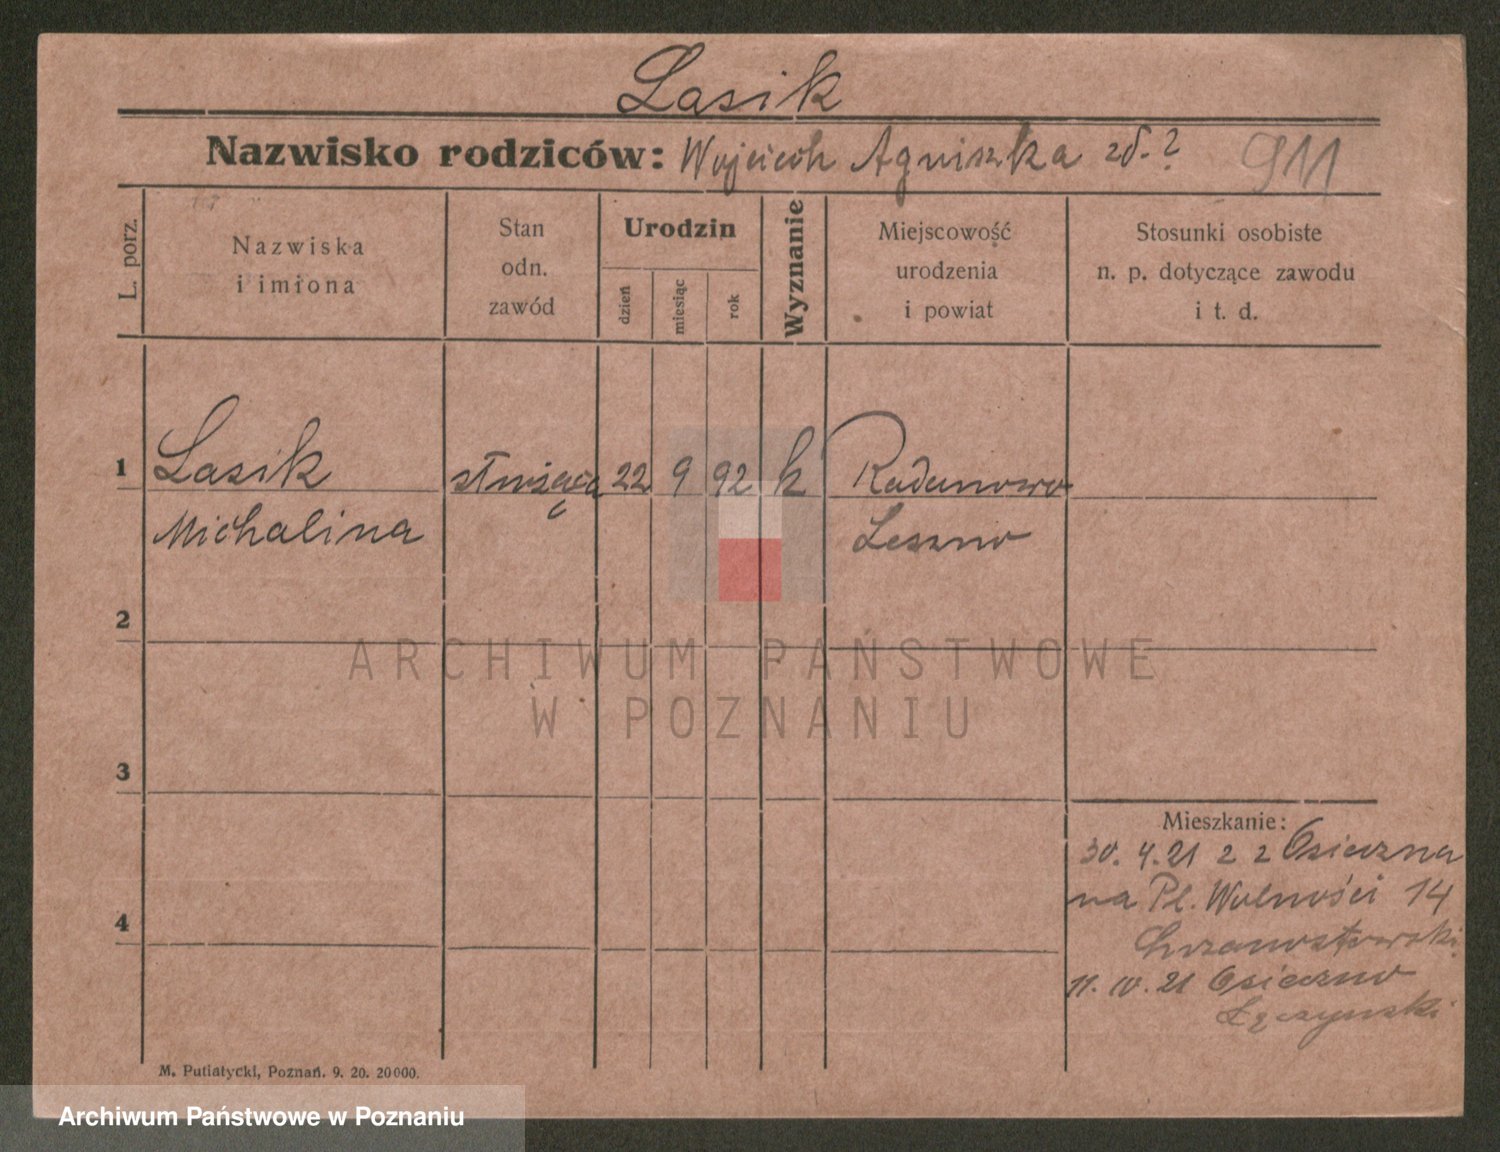 Lasik
Nazwisko rodziców: Wojciech Agniszka zd. ?
911
L. porz.
Nazwiska
i imiona
Stan
odn.
zawód
Urodzin
dzień
miesiąc
rok
Wyznanie
Miejscowość
urodzenia
i powiat
Stosunki osobiste
n. p. dotyczące zawodu
i t. d.
1 Lasik służąca 22 9 92 k Radomowo
Michalina Leszno
2
3
4
Mieszkanie:
30. 4. 21 z Osieczna
na Pl. Wolności 14
11. IV. 21 Osieczno
Łęczynski
M. Putiatycki, Poznań. 9. 20. 20000.
ARCHIWUM PAŃSTWOWE
W POZNANIU
Archiwum Państwowe w Poznaniu